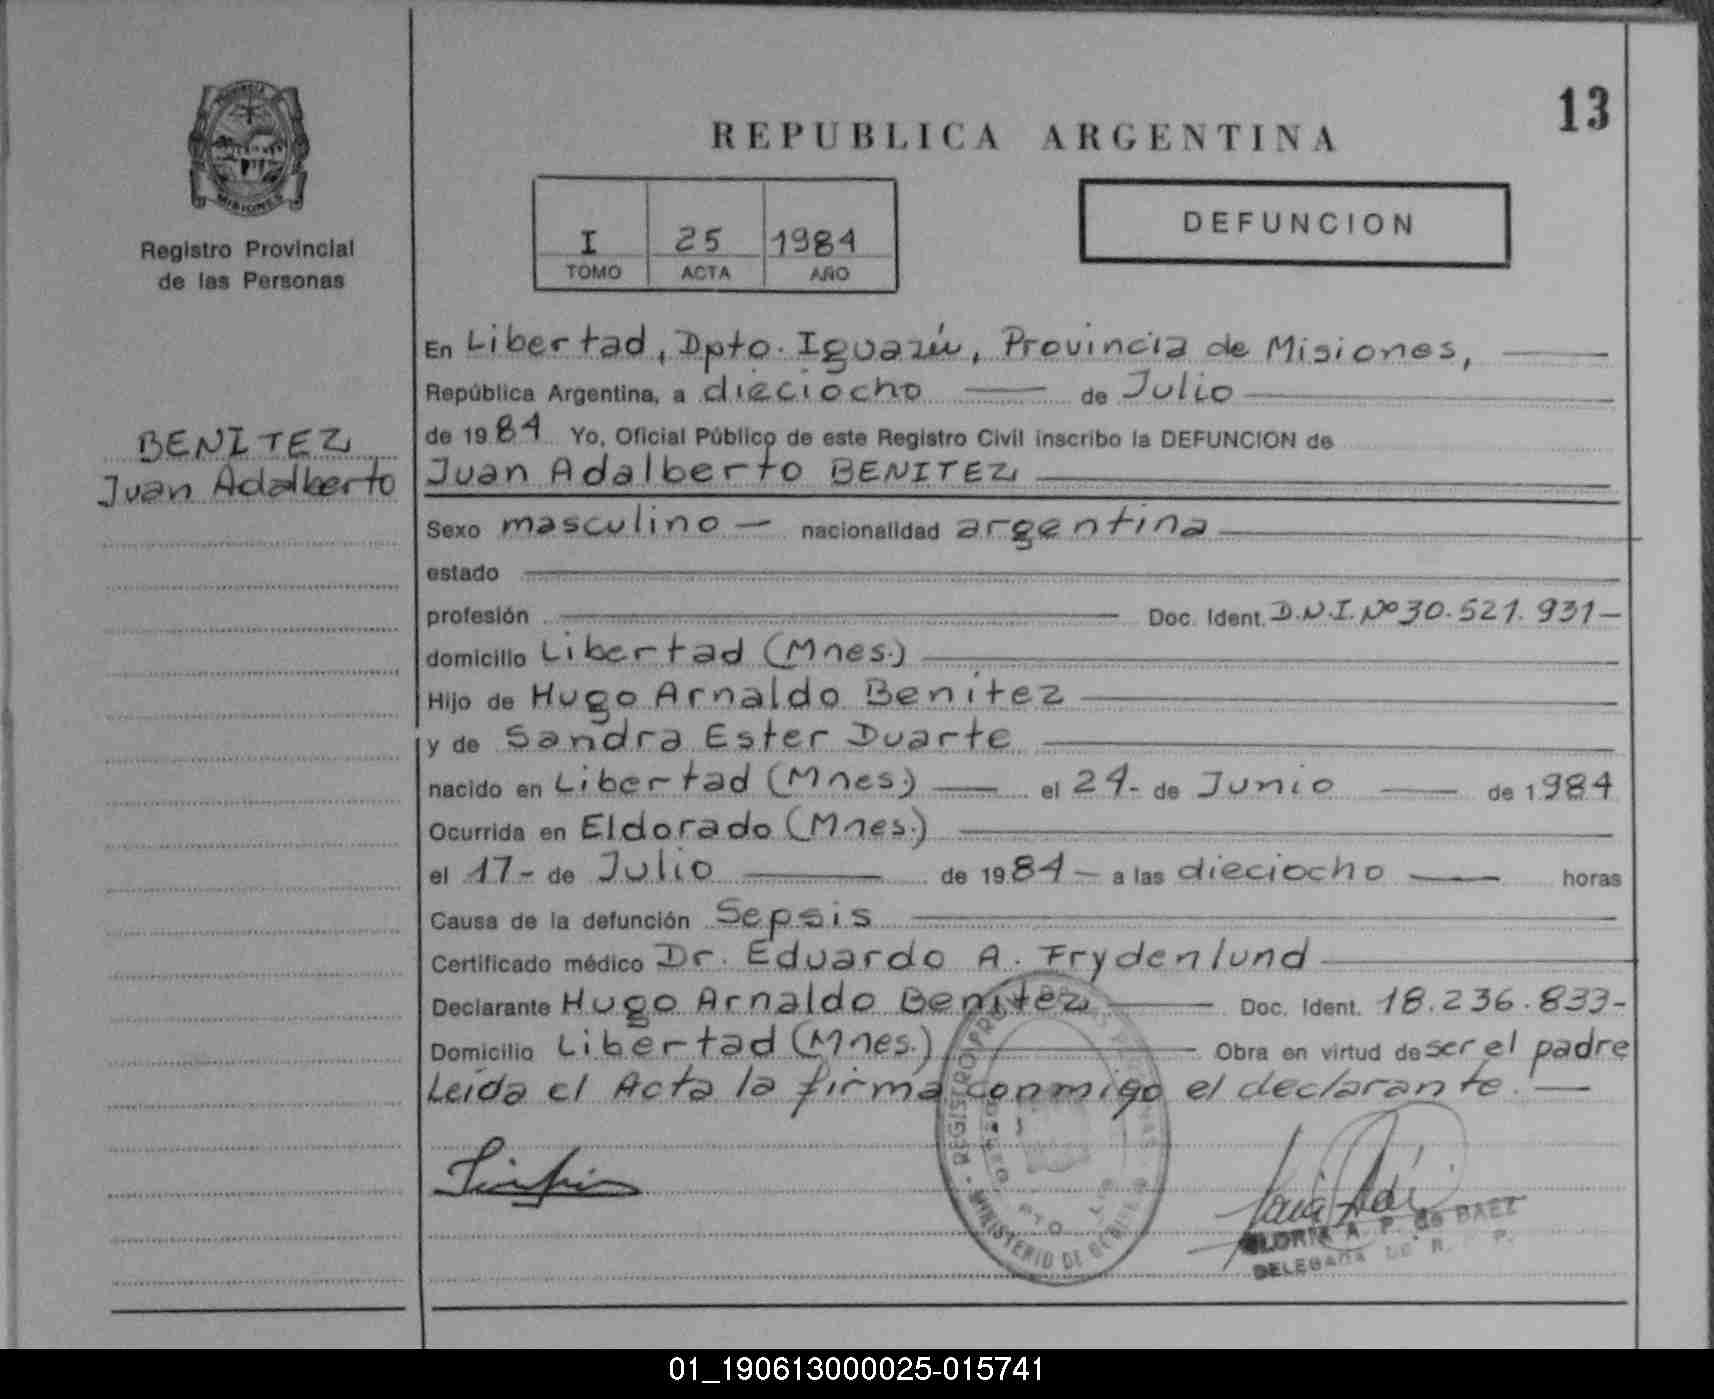 13
REPUBLICA ARGENTINA
PROVINCIA
MISIONES
Registro Provincial
de las Personas
I 25 1984
TOMO ACTA AÑO
DEFUNCION
BENITEZ
Juan Adalberto
En Libertad, Dpto. Iguazú, Provincia de Misiones,
República Argentina, a dieciocho de Julio
de 1984 Yo, Oficial Público de este Registro Civil inscribo la DEFUNCION de
Juan Adalberto BENITEZ
Sexo masculino — nacionalidad argentina
estado
profesión Doc. Ident. D.N.I. Nº 30.521.931-
domicilio Libertad (Mnes.)
Hijo de Hugo Arnaldo Benítez
y de Sandra Ester Duarte
nacido en Libertad (Mnes.) — el 24- de Junio — de 1984
Ocurrida en Eldorado (Mnes.)
el 17- de Julio — de 1984 — a las dieciocho — horas
Causa de la defunción Sepsis
Certificado médico Dr. Eduardo A. Frydenlund
Declarante Hugo Arnaldo Benítez — Doc. Ident. 18.236.833-
Domicilio Libertad (Mnes.) — Obra en virtud de ser el padre
Leída el Acta la firma conmigo el declarante. —
REGISTRO
MINISTERIO DE
GLORIA A. P. de BAEZ
DELEGADA
01_190613000025-015741